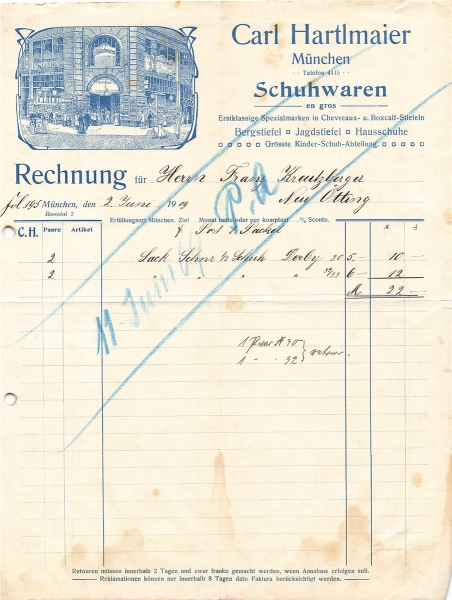 Carl Hartlmaier
München
Telefon 4115
Schuhwaren
en gros
Erstklassige Spezialmarken in Chevreaux- u. Boxcalf-Stiefeln
Bergstiefel Jagdstiefel Hausschuhe
Grösste Kinder-Schuh-Abteilung.
Rechnung für Herrn Franz Kreutzberger
Neu Ötting
Fol 195 München, den 2 Juni 1909
Rosental 2
Erfüllungsort München. Ziel Monat netto oder per komptant % Sconto.
C.H. Paare Artikel M d
Post Packet
2 Lack Schnür Schuh Derby 30 5.- 10 -
2 " " " 6 - 12
M 22 -
11. Juni 09
1 Paar N 30
1 " " 32 retour.
Retouren müssen innerhalb 2 Tagen und zwar franko gemacht werden, wenn Annahme erfolgen soll.
Reklamationen können nur innerhalb 8 Tagen dato Faktura berücksichtigt werden.